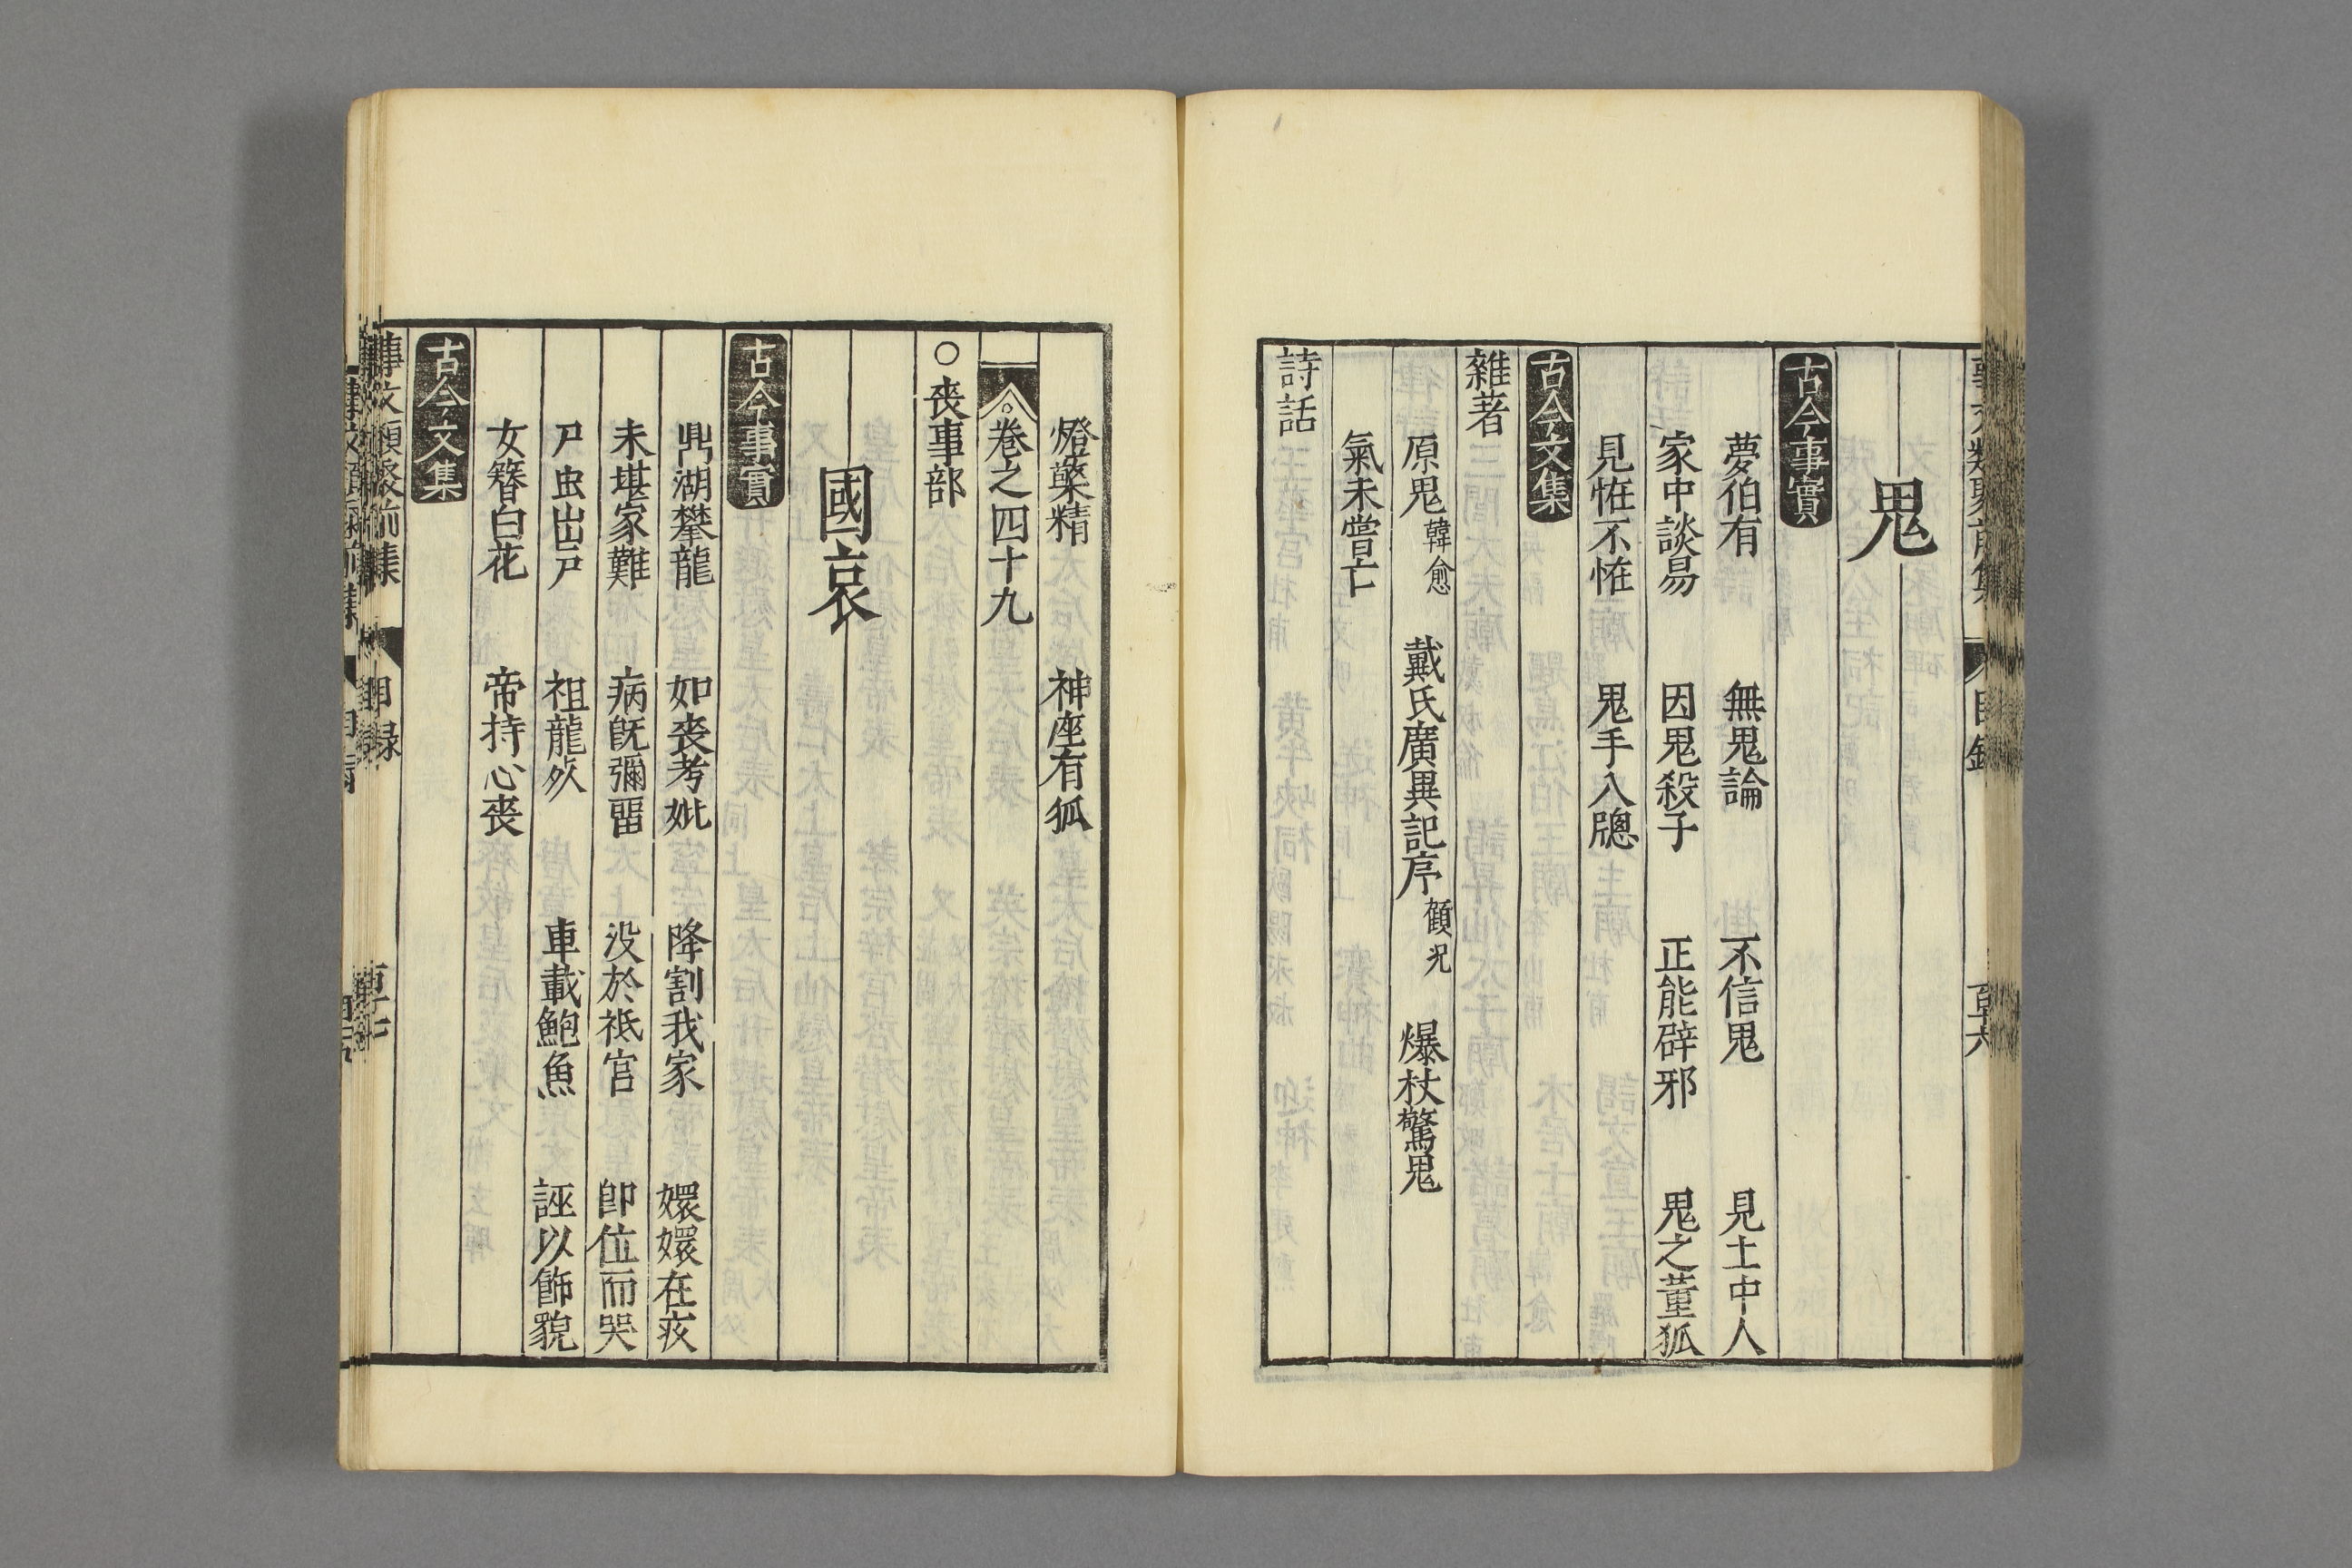 鬼
古今事實
夢伯有　無鬼論　不信鬼　見土中人
家中談易　因鬼殺子　正能辟邪　鬼之董狐
見恠不恠　鬼手入牎
古今文集
雜著
原鬼 韓愈　戴氏廣異記序 顧況　爆杖驚鬼
氣未嘗亡
詩話
燈檠精　神座有狐
卷之四十九
○喪事部
國哀
古今事實
鼎湖攀龍　如喪考妣　降割我家　嬛嬛在疚
未堪家難　病旣彌留　没於祗宫　卽位而哭
尸虫出戸　祖龍死　車載鮑魚　誣以飾貌
女簪白花　帝持心喪
古今文集
事文類聚前集　目録